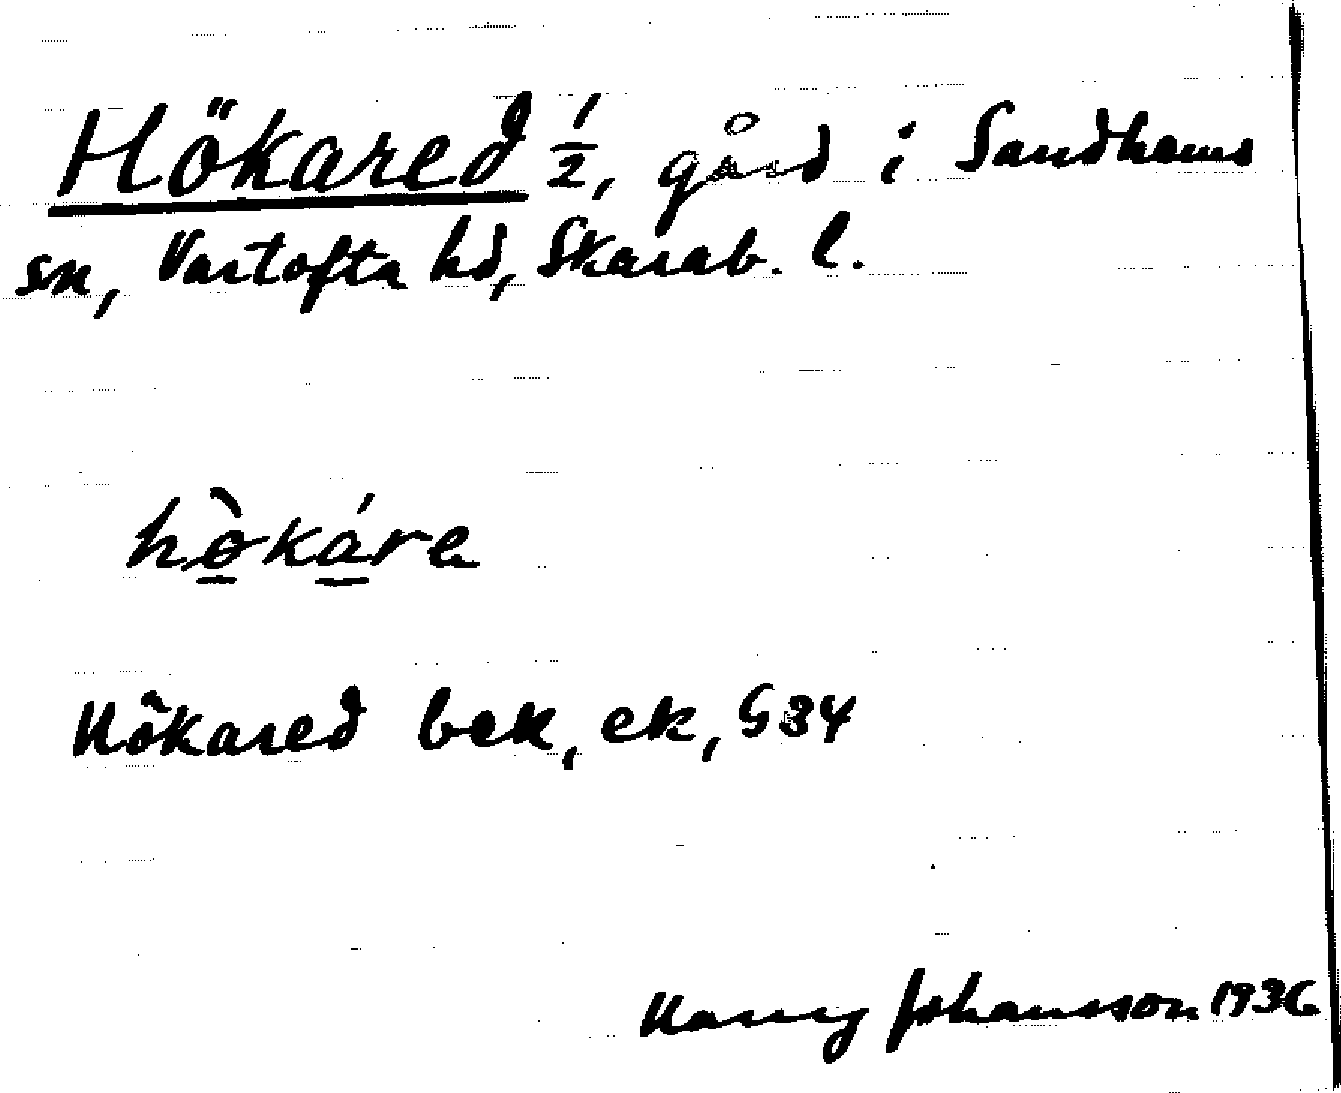 Hökared 1/2, gård i Sandhems
sn, Vartofta hd, Skarab. l.
hö̀káre
Hökared bek, ek, G34
Harry Johansson 1936